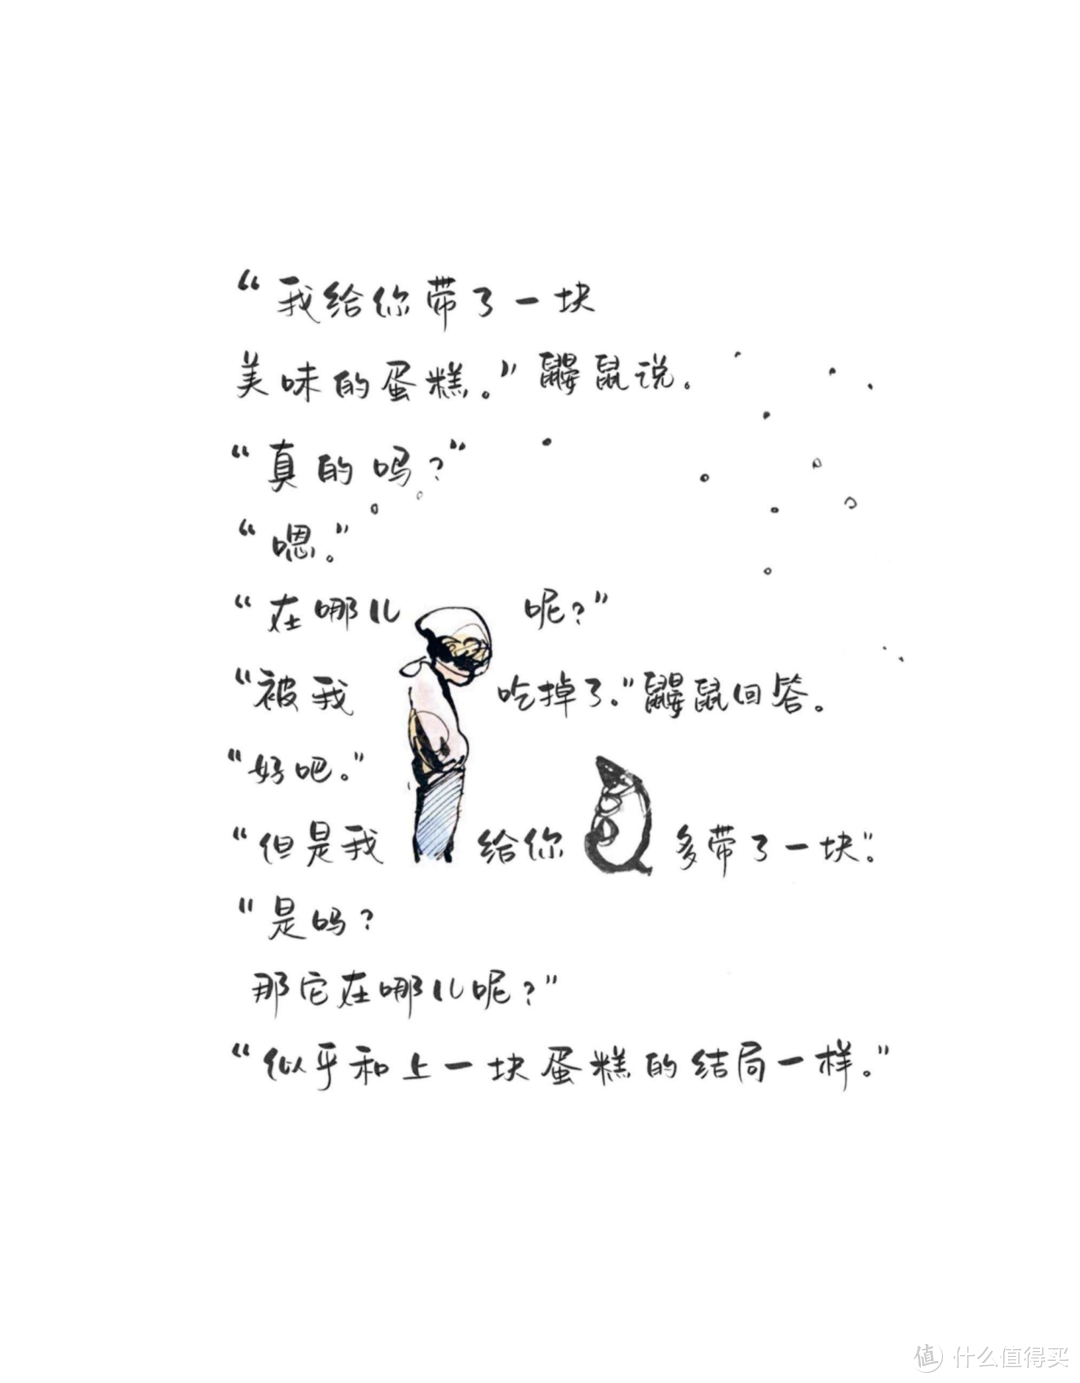 “我给你带了一块
美味的蛋糕。”鼹鼠说。
“真的吗？”
“嗯。”
“在哪儿呢？”
“被我吃掉了。”鼹鼠回答。
“好吧。”
“但是我给你多带了一块”。
“是吗？
那它在哪儿呢？”
“似乎和上一块蛋糕的结局一样。”
值 什么值得买